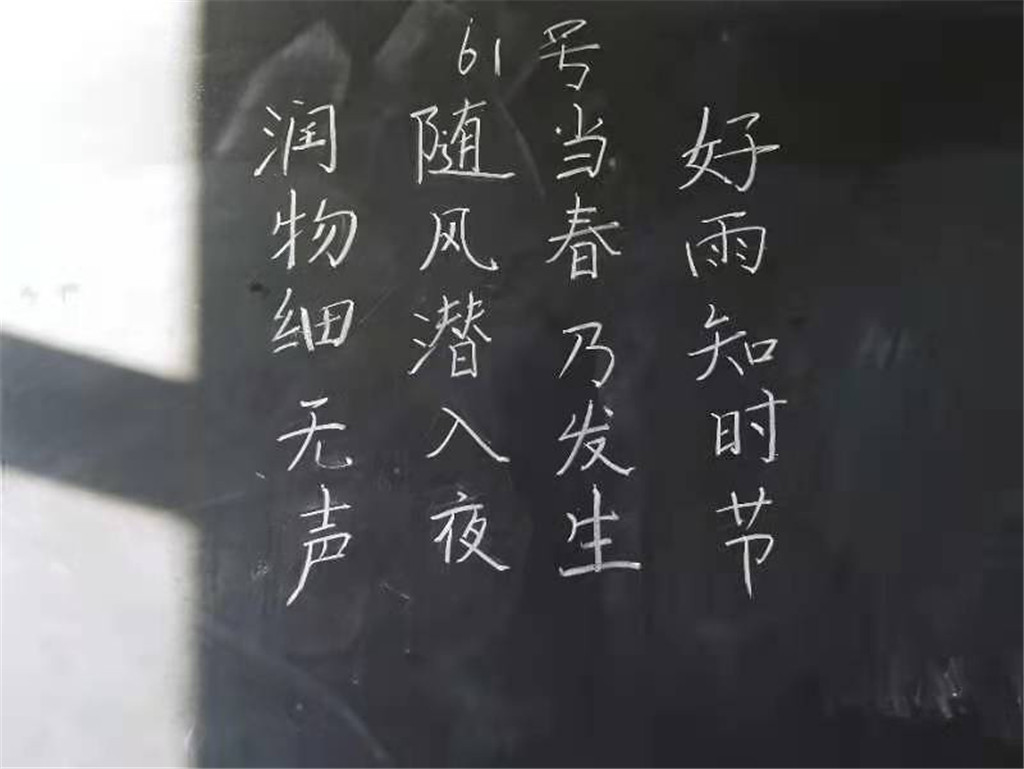 61号
好雨知时节
当春乃发生
随风潜入夜
润物细无声